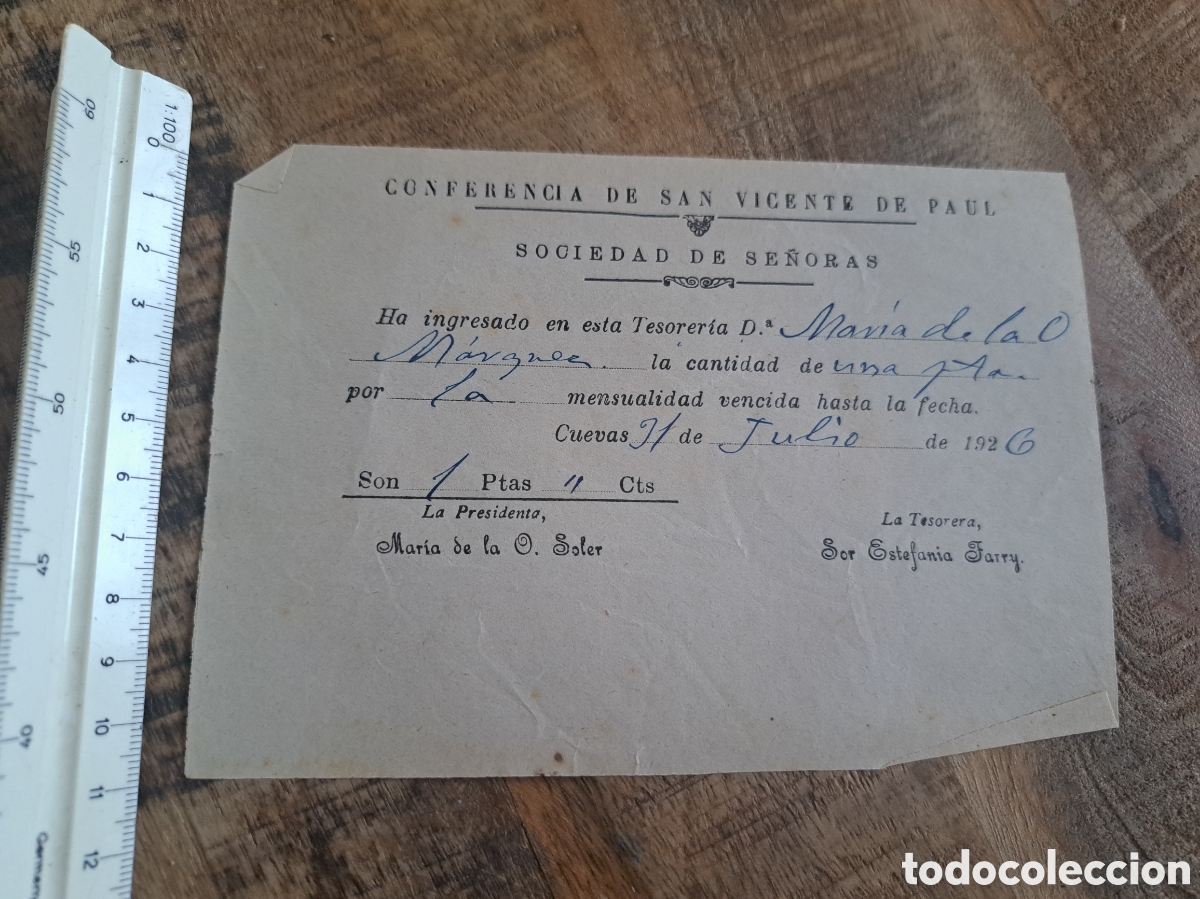 CONFERENCIA DE SAN VICENTE DE PAUL
SOCIEDAD DE SEÑORAS
Ha ingresado en esta Tesorería D.ª María de la O
Márquez la cantidad de una pta.
por la mensualidad vencida hasta la fecha.
Cuevas 31 de Julio de 1926
Son 1 Ptas " Cts
La Presidenta,
María de la O. Soler
La Tesorera,
Sor Estefania Farry.
1:100
0
1
2
3
4
5
6
7
8
9
10
11
12
60
55
50
45
40
todocoleccion